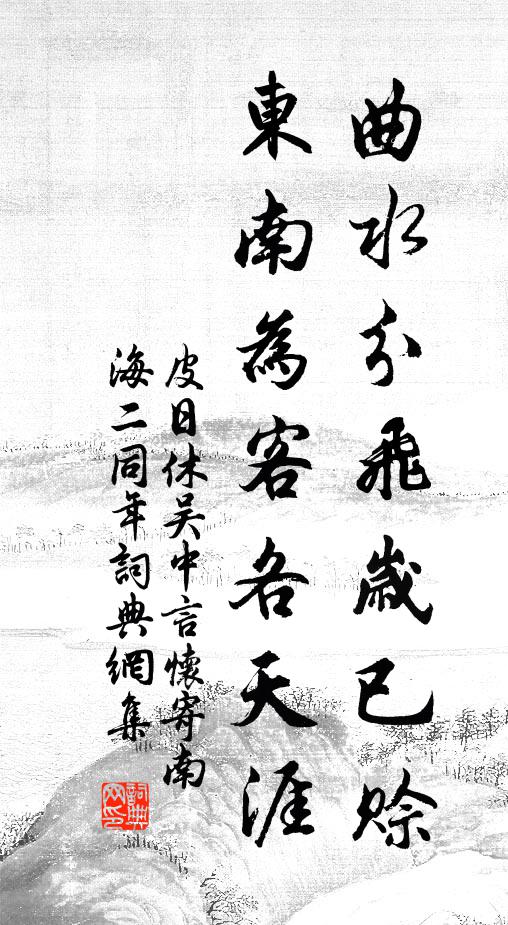 曲水分飛歲已賒
東南為客各天涯
皮日休吳中言懷寄南
海二同年詞典網集
詞典網印